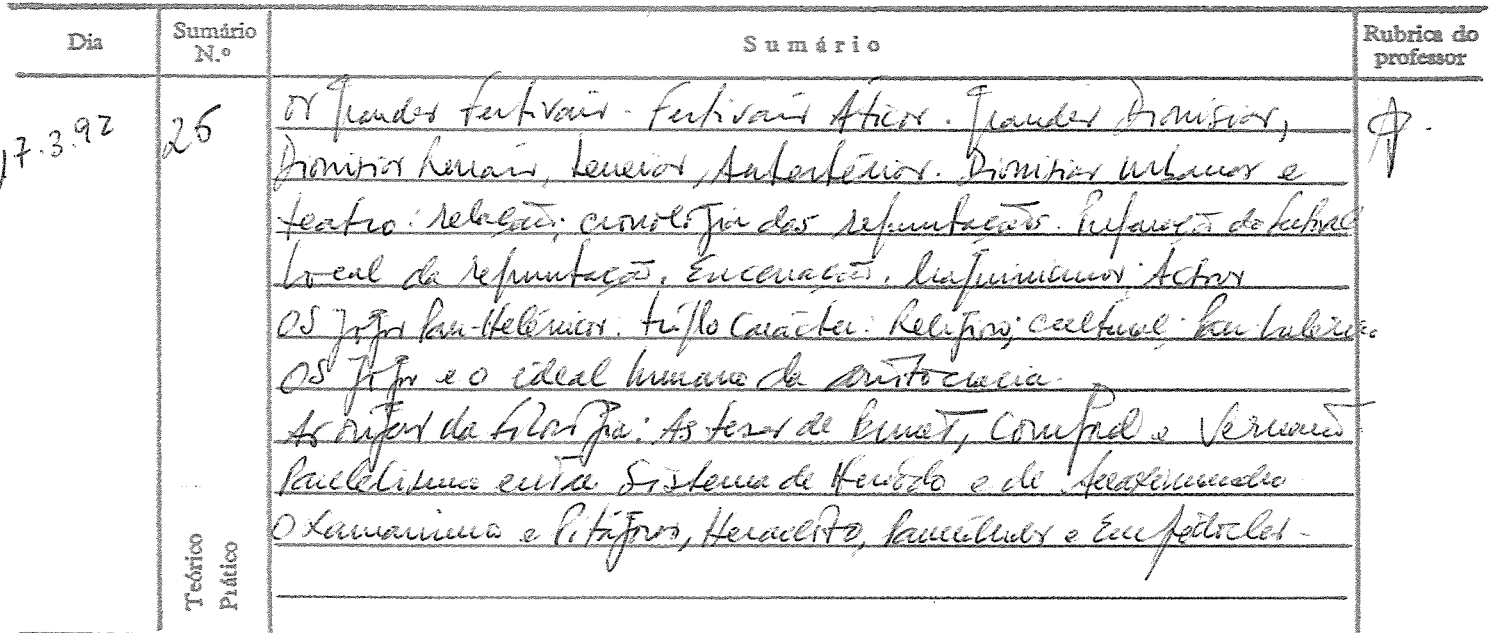 Dia Sumário N.º Sumário Rubrica do professor
17.3.92 26 Os Grandes Festivais - Festivais Áticos. Grandes Dionísias,
Dionísias Rurais, Leneias, Antestérias. Dionísias Urbanas e
teatro: relação; cronologia das representações. Preparação do festival
Local da representação. Encenação. Maquinismos. Actores
OS Jogos Pan-Helénicos. triplo carácter: Religioso; cultural; Pan-helénico
OS Jogos e o ideal humano da aristocracia.
As origens da filosofia: As teses de Burnet, Cornford e Vernant
Paralelismo entre Sistema de Hesíodo e de Anaximandro
O Xamanismo e Pitágoras, Heraclito, Parménides e Empédocles.
Teórico
Prático